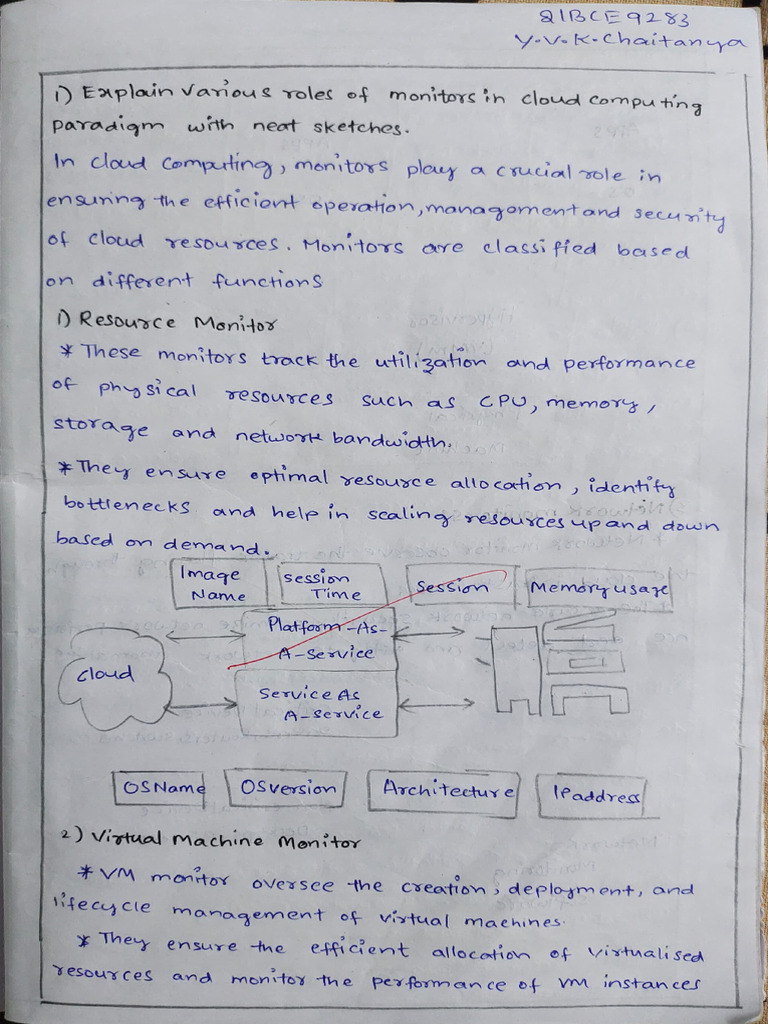 21BCE9283
Y.V.K.Chaitanya
1) Explain various roles of monitors in cloud computing
paradigm with neat sketches.
In cloud computing, monitors play a crucial role in
ensuring the efficient operation, management and security
of cloud resources. Monitors are classified based
on different functions
1) Resource Monitor
* These monitors track the utilization and performance
of physical resources such as CPU, memory,
storage and network bandwidth.
* They ensure optimal resource allocation, identify
bottlenecks and help in scaling resources up and down
based on demand.
Image Name
Session Time
Session
Memory usage
Cloud
Platform-As-
A-Service
Service As
A-Service
OSName
OSversion
Architecture
IPaddress
2) Virtual Machine Monitor
* VM monitor oversee the creation, deployment, and
lifecycle management of virtual machines.
* They ensure the efficient allocation of virtualised
resources and monitor the performance of VM instances